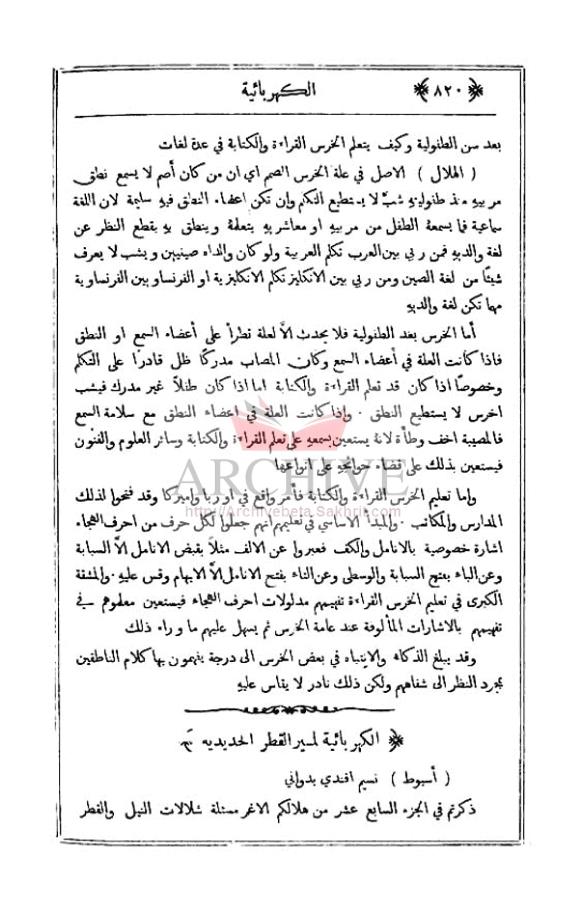 ﴿ ٨٢٠ ﴾
الكهربائية
بعد سن الطفولية وكيف يتعلم الخرس القراءة والكتابة في عدة لغات
( الهلال ) الاصل في علة الخرس الصمم اي ان من كان أصم لا يسمع نطق
مربيه منذ طفوليته شبَّ لا يستطيع التكلم وان تكن اعضاء النطق فيهِ سليمة لان اللغة
سماعية فما يسمعهُ الطفل من مربيهِ او معاشريهِ يتعلمهُ وينطق بهِ بقطع النظر عن
لغة والديهِ فمن ربي بين العرب تكلم العربية ولو كان والداه صينيين ويشب لا يعرف
شيئًا من لغة الصين ومن ربي بين الانكليز تكلم الانكليزية او الفرنساو بين الفرنساوية
مهما تكن لغة والديهِ
أما الخرس بعد الطفولية فلا يحدث الاَّ لعلة تطرأ على أعضاء السمع او النطق
فاذا كانت العلة في أعضاء السمع وكان المصاب مدركًا ظل قادرًا على التكلم
وخصوصًا اذا كان قد تعلم القراءة والكتابة اما اذا كان طفلاً غير مدرك فيشب
اخرس لا يستطيع النطق . واذا كانت العلة في اعضاء النطق مع سلامة السمع
فالمصيبة اخف وطأة لانهُ يستعين بسمعهِ على تعلم القراءة والكتابة وسائر العلوم والفنون
فيستعين بذلك على قضاء حوائجهِ على انواعها
ARCHIVE
http://Archivebeta.Sakhrit.com
واما تعليم الخرس القراءة والكتابة فأمر واقع في اوربا واميركا وقد فتحوا لذلك
المدارس والمكاتب . والمبدأ الاساسي في تعليمهم انهم جعلوا لكل حرف من احرف الهجاء
اشارة خصوصية بالانامل والكف فعبروا عن الالف مثلاً بقبض الانامل الاَّ السبابة
وعن الباء بفتح السبابة والوسطى وعن التاء بفتح الانامل الاَّ الابهام وقس عليهِ . والمشقة
الكبرى في تعليم الخرس القراءة تفهيمهم مدلولات احرف الهجاء فيستعين معلموهم في
تفهيمهم بالاشارات المألوفة عند عامة الخرس ثم يسهل عليهم ما وراء ذلك
وقد يبلغ الذكاء والانتباه في بعض الخرس الى درجة يفهمون بها كلام الناطقين
بمجرد النظر الى شفاههم ولكن ذلك نادر لا يقاس عليهِ
﴿ الكهربائية لمسير القطر الحديديه ﴾
( أسيوط ) نسيم افندي بدواني
ذكرتم في الجزء السابع عشر من هلالكم الاغر مسئلة شلالات النيل والقطر